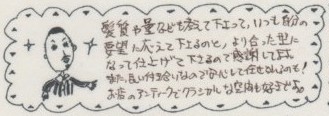 髪質や量なども考えて下さって、いつも自分の
要望に応えて下さるのと、より合った型に
なって仕上げて下さるので感謝してます。
また、長い付き合いなので安心して任せられるのも!
お店のアンティークでクラシカルな空間も好きです。